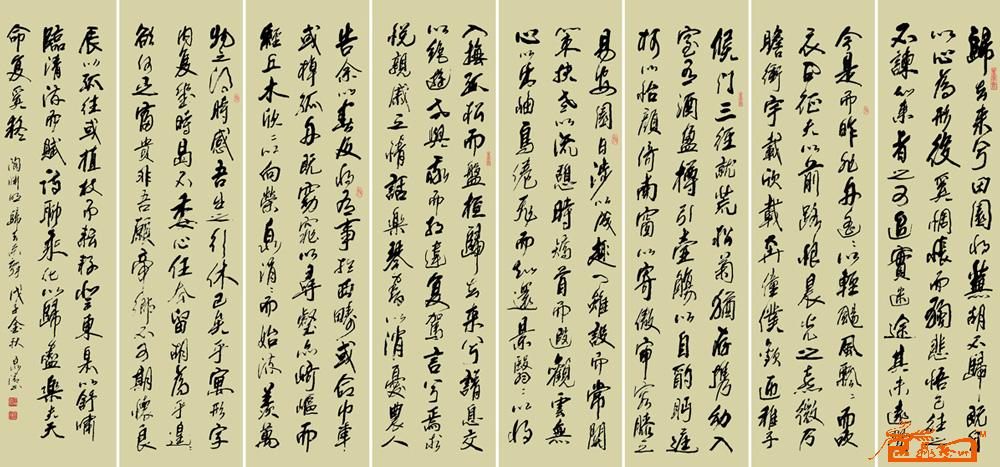 歸去来兮田園将蕪胡不歸既自
以心為形役奚惆悵而獨悲悟已往之
不諫知来者之可追實迷途其未遠覺
今是而昨非舟遙遙以輕颺風飄飄而吹
衣問征夫以前路恨晨光之熹微乃
瞻衡宇載欣載奔僮僕歡迎稚子
候門三徑就荒松菊猶存攜幼入
室有酒盈樽引壺觴以自酌眄庭
柯以怡顔倚南窗以寄傲審容膝之
易安園日涉以成趣門雖設而常関
策扶老以流憩時矯首而遐觀雲無
心以出岫鳥倦飛而知還景翳翳以将
入撫孤松而盤桓歸去来兮請息交
以絶遊世與我而相違復駕言兮焉求
悦親戚之情話樂琴書以消憂農人
告余以春及将有事於西疇或命巾車
或棹孤舟既窈窕以尋壑亦崎嶇而
經丘木欣欣以向榮泉涓涓而始流羨萬
物之得時感吾生之行休已矣乎寓形宇
内复幾時曷不委心任去留胡為乎遑遑
欲何之富貴非吾願帝鄉不可期懷良
辰以孤往或植杖而耘耔登東皋以舒嘯
臨清流而賦詩聊乘化以歸盡樂夫天
命复奚疑 陶淵明歸去来辭 戊子金秋